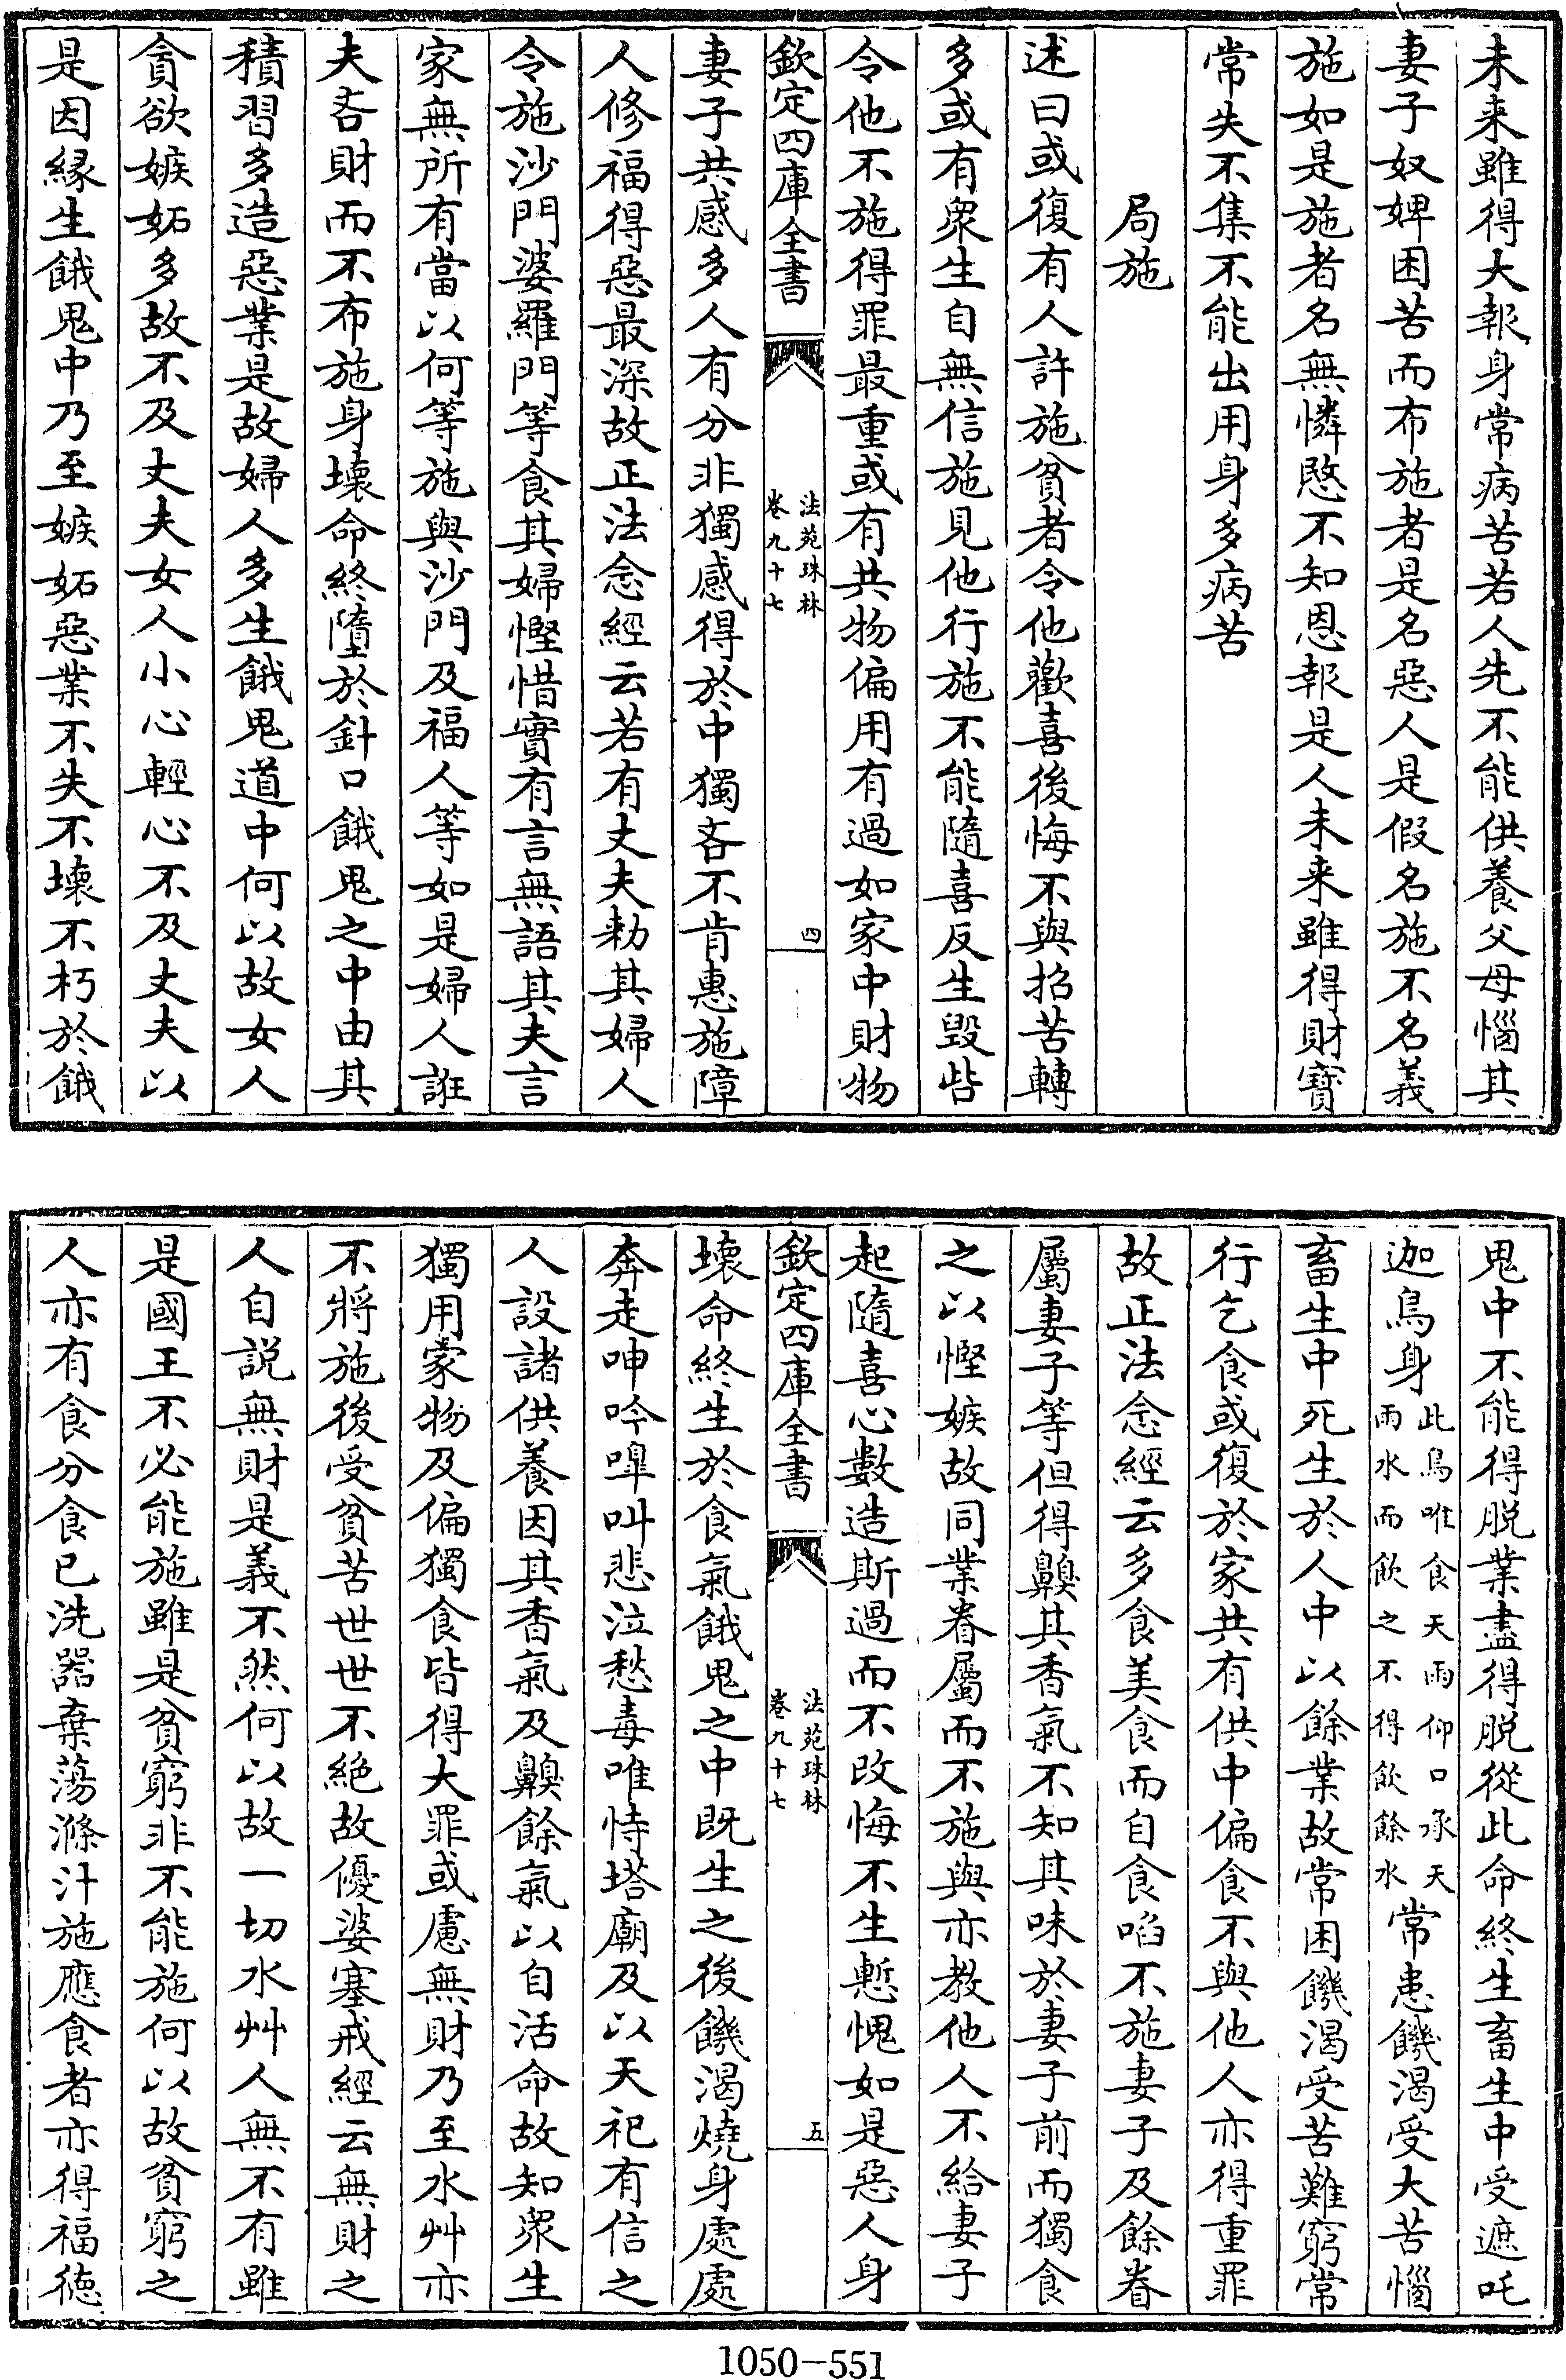 未来雖得大報身常病苦若人先不能供養父母惱其
妻子奴婢困苦而布施者是名惡人是假名施不名義
施如是施者名無憐愍不知恩報是人未来雖得財寳
常失不集不能出用身多病苦
局施
述曰或復有人許施貧者令他歡喜後悔不與招苦轉
多或有衆生自無信施見他行施不能隨喜反生毀呰
令他不施得罪最重或有共物偏用有過如家中財物
欽定四庫全書
法苑珠林
卷九十七
四
妻子共感多人有分非獨感得於中獨吝不肯惠施障
人修福得惡最深故正法念經云若有丈夫勅其婦人
令施沙門婆羅門等食其婦慳惜實有言無語其夫言
家無所有當以何等施與沙門及福人等如是婦人誑
夫吝財而不布施身壞命終墮於針口餓鬼之中由其
積習多造惡業是故婦人多生餓鬼道中何以故女人
貪欲嫉妬多故不及丈夫女人小心輕心不及丈夫以
是因縁生餓鬼中乃至嫉妬惡業不失不壞不朽於餓
鬼中不能得脱業盡得脱從此命終生畜生中受遮吒
迦鳥身此鳥唯食天雨仰口承天雨水而飲之不得飲餘水常患饑渴受大苦惱
畜生中死生於人中以餘業故常困饑渴受苦難窮常
行乞食或復於家共有供中偏食不與他人亦得重罪
故正法念經云多食美食而自食啗不施妻子及餘眷
屬妻子等但得齅其香氣不知其味於妻子前而獨食
之以慳嫉故同業眷屬而不施與亦教他人不給妻子
起隨喜心數造斯過而不改悔不生慙愧如是惡人身
欽定四庫全書
法苑珠林
卷九十七
五
壞命終生於食氣餓鬼之中既生之後饑渴燒身處處
奔走呻吟嘷叫悲泣愁毒唯恃塔廟及以天祀有信之
人設諸供養因其香氣及齅餘氣以自活命故知衆生
獨用䝉物及偏獨食皆得大罪或慮無財乃至水艸亦
不將施後受貧苦世世不絶故優婆塞戒經云無財之
人自説無財是義不然何以故一切水艸人無不有雖
是國王不必能施雖是貧窮非不能施何以故貧窮之
人亦有食分食已洗器棄蕩滌汁施應食者亦得福徳
1050-551